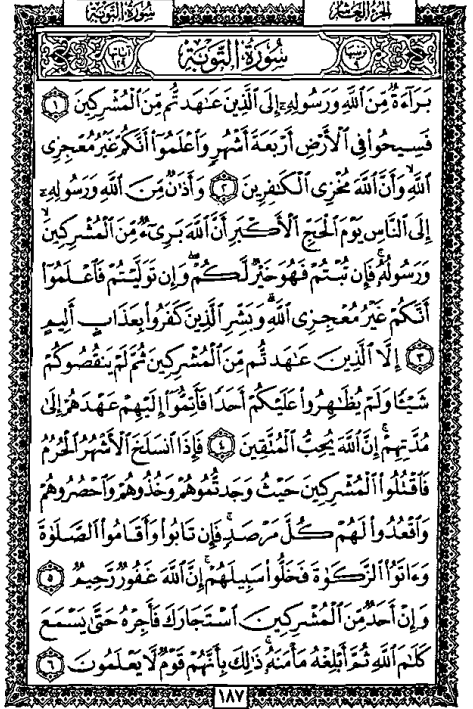 سُورَةُ التَّوْبَةِ الجُزءُ العَاشِرُ
سُورَةُ التَّوْبَةِ
بَرَآءَةٌ مِّنَ ٱللَّهِ وَرَسُولِهِۦٓ إِلَى ٱلَّذِينَ عَٰهَدتُّم مِّنَ ٱلْمُشْرِكِينَ ١
فَسِيحُوا۟ فِى ٱلْأَرْضِ أَرْبَعَةَ أَشْهُرٍ وَٱعْلَمُوٓا۟ أَنَّكُمْ غَيْرُ مُعْجِزِى
ٱللَّهِ ۙ وَأَنَّ ٱللَّهَ مُخْزِى ٱلْكَٰفِرِينَ ٢ وَأَذَٰنٌ مِّنَ ٱللَّهِ وَرَسُولِهِۦٓ
إِلَى ٱلنَّاسِ يَوْمَ ٱلْحَجِّ ٱلْأَكْبَرِ أَنَّ ٱللَّهَ بَرِىٓءٌ مِّنَ ٱلْمُشْرِكِينَ ۙ
وَرَسُولُهُۥ ۚ فَإِن تُبْتُمْ فَهُوَ خَيْرٌ لَّكُمْ ۖ وَإِن تَوَلَّيْتُمْ فَٱعْلَمُوٓا۟
أَنَّكُمْ غَيْرُ مُعْجِزِى ٱللَّهِ ۗ وَبَشِّرِ ٱلَّذِينَ كَفَرُوا۟ بِعَذَابٍ أَلِيمٍ
٣ إِلَّا ٱلَّذِينَ عَٰهَدتُّم مِّنَ ٱلْمُشْرِكِينَ ثُمَّ لَمْ يَنقُصُوكُمْ
شَيْـًٔا وَلَمْ يُظَٰهِرُوا۟ عَلَيْكُمْ أَحَدًا فَأَتِمُّوٓا۟ إِلَيْهِمْ عَهْدَهُمْ إِلَىٰ
مُدَّتِهِمْ ۚ إِنَّ ٱللَّهَ يُحِبُّ ٱلْمُتَّقِينَ ٤ فَإِذَا ٱنسَلَخَ ٱلْأَشْهُرُ ٱلْحُرُمُ
فَٱقْتُلُوا۟ ٱلْمُشْرِكِينَ حَيْثُ وَجَدتُّمُوهُمْ وَخُذُوهُمْ وَٱحْصُرُوهُمْ
وَٱقْعُدُوا۟ لَهُمْ كُلَّ مَرْصَدٍ ۚ فَإِن تَابُوا۟ وَأَقَامُوا۟ ٱلصَّلَوٰةَ
وَءَاتَوُا۟ ٱلزَّكَوٰةَ فَخَلُّوا۟ سَبِيلَهُمْ ۚ إِنَّ ٱللَّهَ غَفُورٌ رَّحِيمٌ ٥
وَإِنْ أَحَدٌ مِّنَ ٱلْمُشْرِكِينَ ٱسْتَجَارَكَ فَأَجِرْهُ حَتَّىٰ يَسْمَعَ
كَلَٰمَ ٱللَّهِ ثُمَّ أَبْلِغْهُ مَأْمَنَهُۥ ۚ ذَٰلِكَ بِأَنَّهُمْ قَوْمٌ لَّا يَعْلَمُونَ ٦
١٨٧